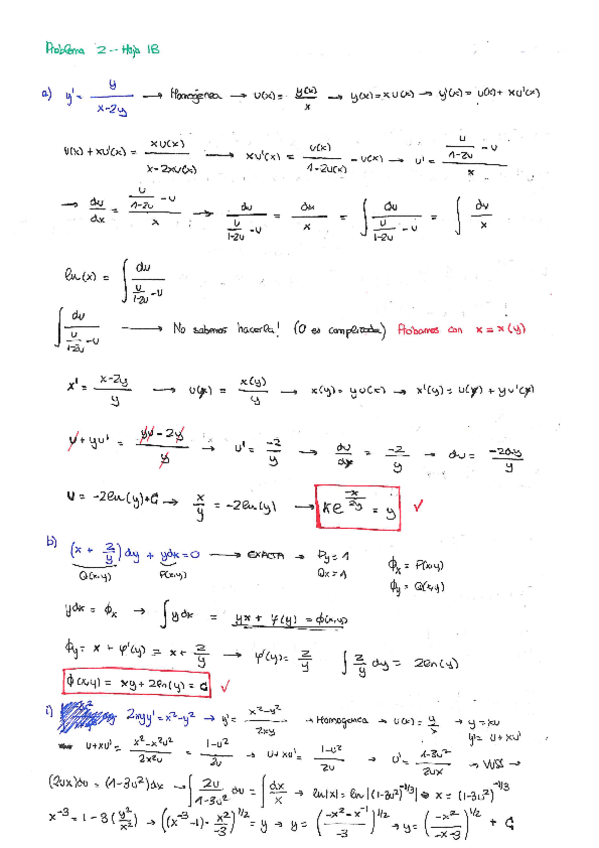 Problema 2 - Hoja 1B
a) y' = y/(x-2y) → Homogénea → u(x) = y(x)/x → y(x) = x u(x) → y'(x) = u(x) + x u'(x)
u(x) + x u'(x) = x u(x)/(x-2x u(x)) → x u'(x) = u(x)/(1-2u(x)) - u(x) → u' = (u/(1-2u) - u)/x
→ du/dx = (u/(1-2u) - u)/x → du/(u/(1-2u) - u) = dx/x = ∫ du/(u/(1-2u) - u) = ∫ dx/x
ln(x) = ∫ du/(u/(1-2u) - u)
∫ du/(u/(1-2u) - u) → No sabemos hacerla! (O es complicada) Probamos con x = x(y)
x' = (x-2y)/y → u(y) = x(y)/y → x(y) = y u(x) → x'(y) = u(y) + y u'(y)
u + yu' = (yu - 2y)/y → u' = -2/y → du/dy = -2/y → du = -2dy/y
u = -2ln(y)+C → x/y = -2ln(y) → k e^(-x/2y) = y ✓
b) (x + 2/y) dy + ydx = 0 → EXACTA → Py = 1 ϕx = P(x,y)
Q(x,y) P(x,y) Qx = 1 ϕy = Q(x,y)
ydx = ϕx → ∫ ydx = yx + φ(y) = ϕ(x,y)
ϕy = x + φ'(y) = x + 2/y → φ'(y) = 2/y ∫ 2/y dy = 2ln(y)
ϕ(x,y) = xy + 2ln(y) = C ✓
i) 2xyy' = x²-y² → y' = (x²-y²)/2xy → Homogenea → u(x) = y/x → y = xu
y' = u + xu'
u+xu' = (x²-x²u²)/2x²u = (1-u²)/2u → u+xu' = (1-u²)/2u → u' = (1-3u²)/2ux → VVSS →
(2ux)du = (1-3u²)dx → ∫ 2u/(1-3u²) du = ∫ dx/x → ln|x| = ln|(1-3u²)^(-1/3)| → x = (1-3u²)^(-1/3)
x^-3 = 1-3(y²/x²) → ((x^-3 -1)·x²/-3)^(1/2) = y → y = ((-x²-x^-1)/-3)^(1/2) → y = (-x²/-x-3)^(1/2) + C